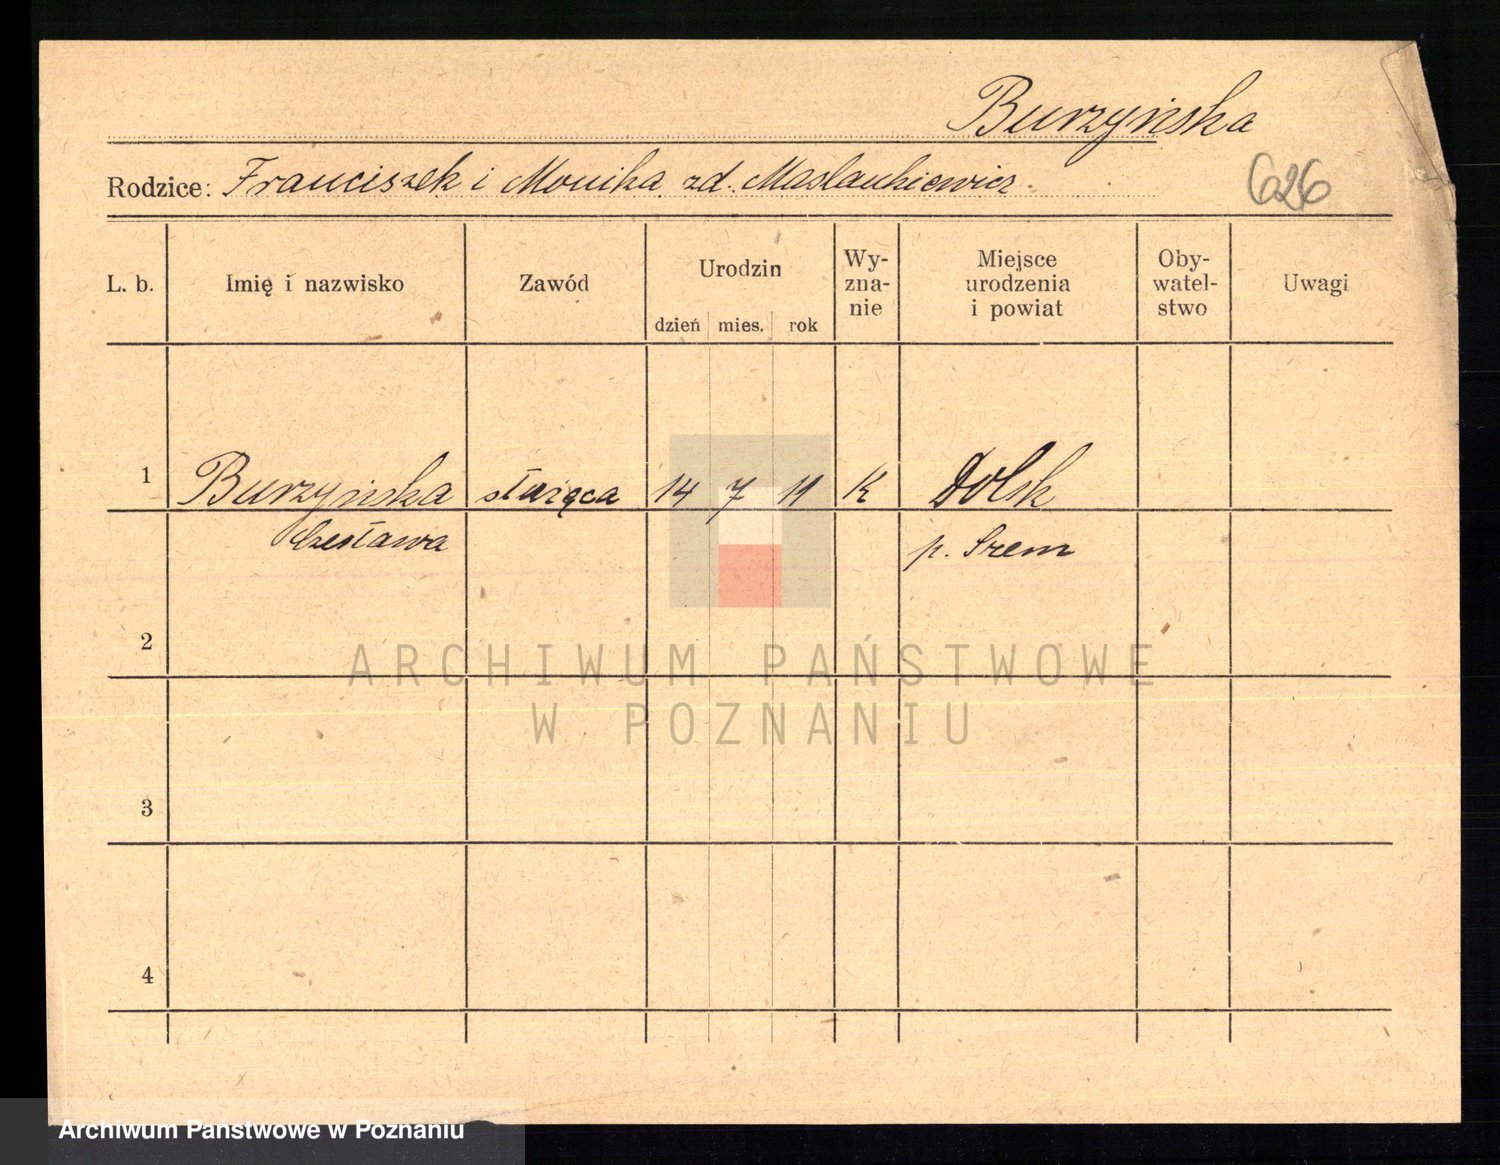 Burzyńska
Rodzice: Franciszek i Monika zd. Maslankiewicz.
626
L. b.
Imię i nazwisko
Zawód
Urodzin
dzień mies. rok
Wy-
zna-
nie
Miejsce
urodzenia
i powiat
Oby-
watel-
stwo
Uwagi
1 Burzyńska służąca 14 7 11 K Dolsk
Czesława p. Srem
2
3
4
ARCHIWUM PAŃSTWOWE
W POZNANIU
Archiwum Państwowe w Poznaniu